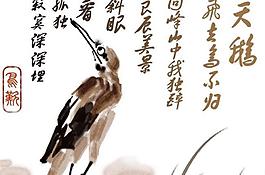 天鹅
飛去鸟不归
回峰山中我独醉
良辰美景
斜眼
看
孤独
寂寞深深埋